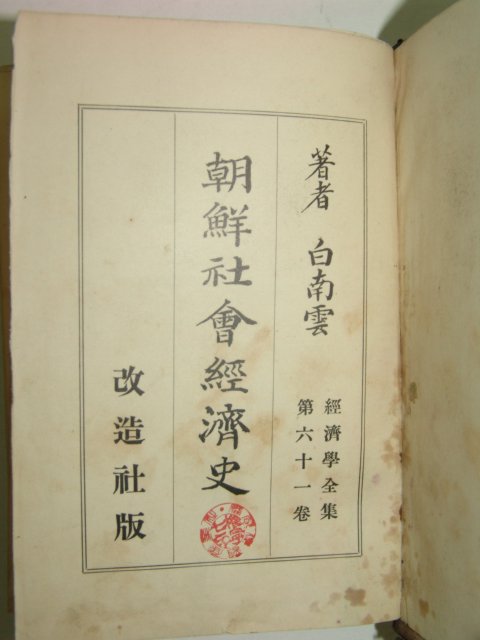 著者 白南雲
經濟學全集
第六十一卷
朝鮮社會經濟史
改造社版